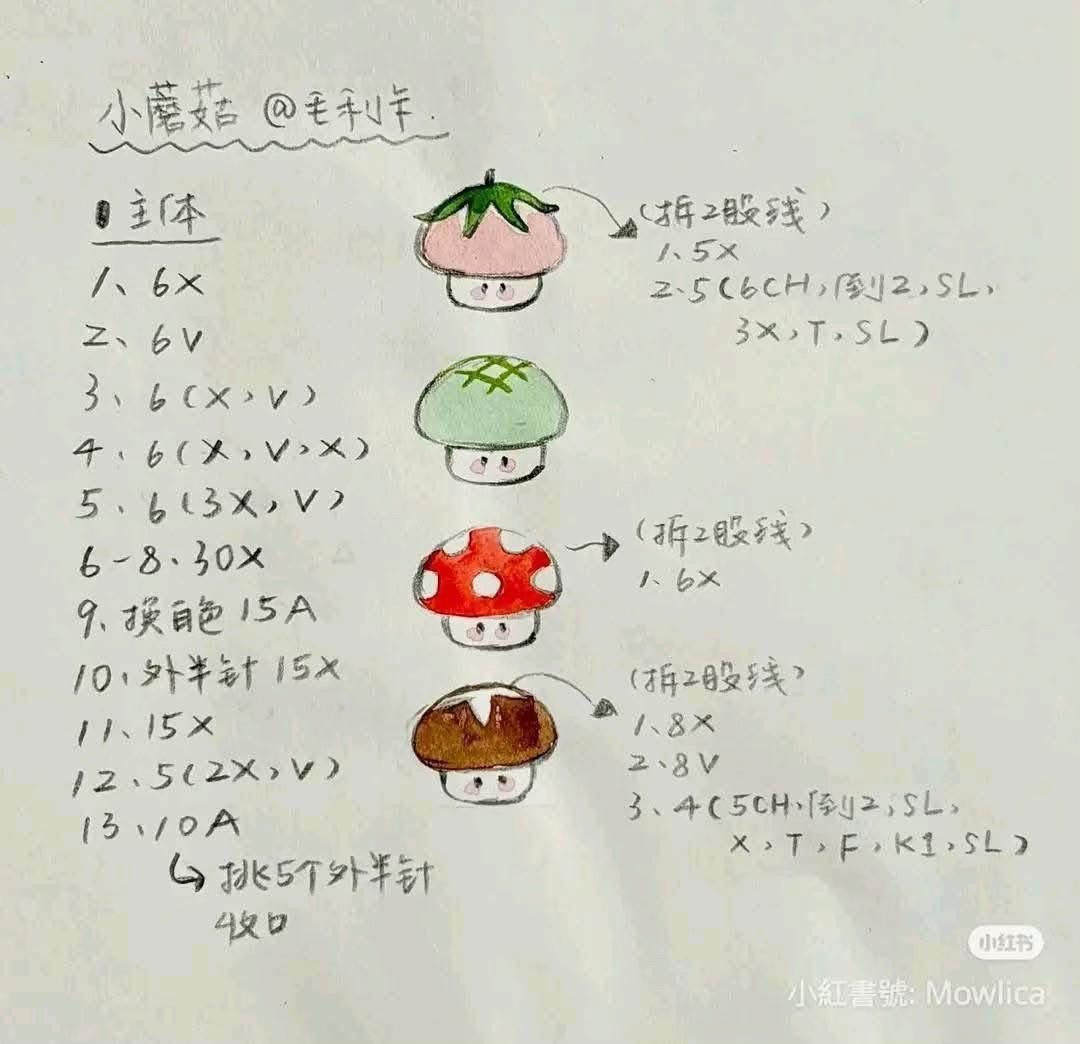 小蘑菇 @毛利卡.
主体
1、6X
2、6V
3、6(X,V)
4、6(X,V,X)
5、6(3X,V)
6-8、30X
9、换白色 15A
10、外半针 15X
11、15X
12、5(2X,V)
13、10A
挑5个外半针
收口
(拆2股线)
1、5X
2、5(6CH,倒2,SL,
3X,T,SL)
(拆2股线)
1、6X
(拆2股线)
1、8X
2、8V
3、4(5CH,倒2,SL,
X,T,F,K1,SL)
小红书
小紅書號: Mowlica